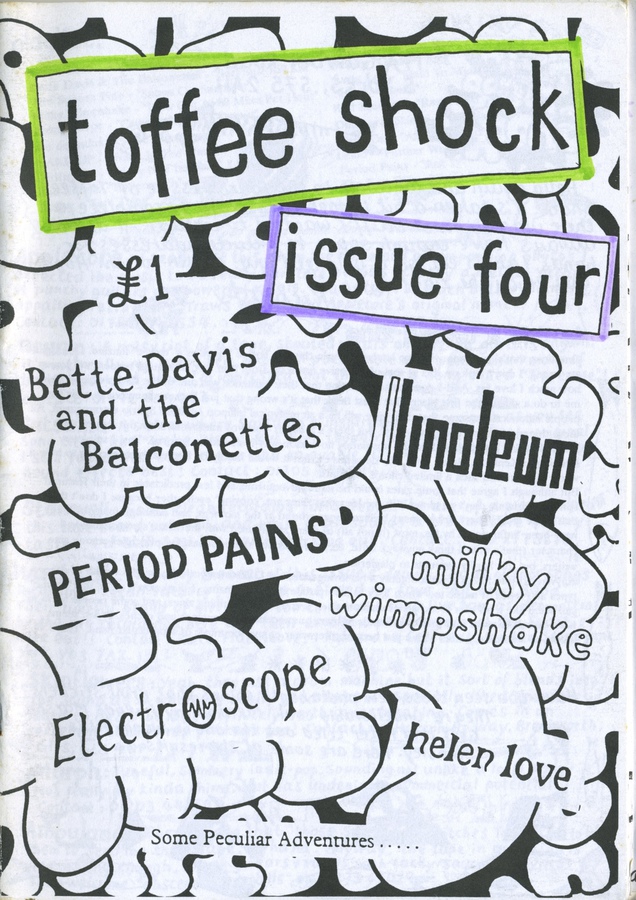 toffee shock
issue four
£1
Bette Davis
and the
Balconettes
linoleum
PERIOD PAINS
milky
wimpshake
Electroscope
helen love
Some Peculiar Adventures......